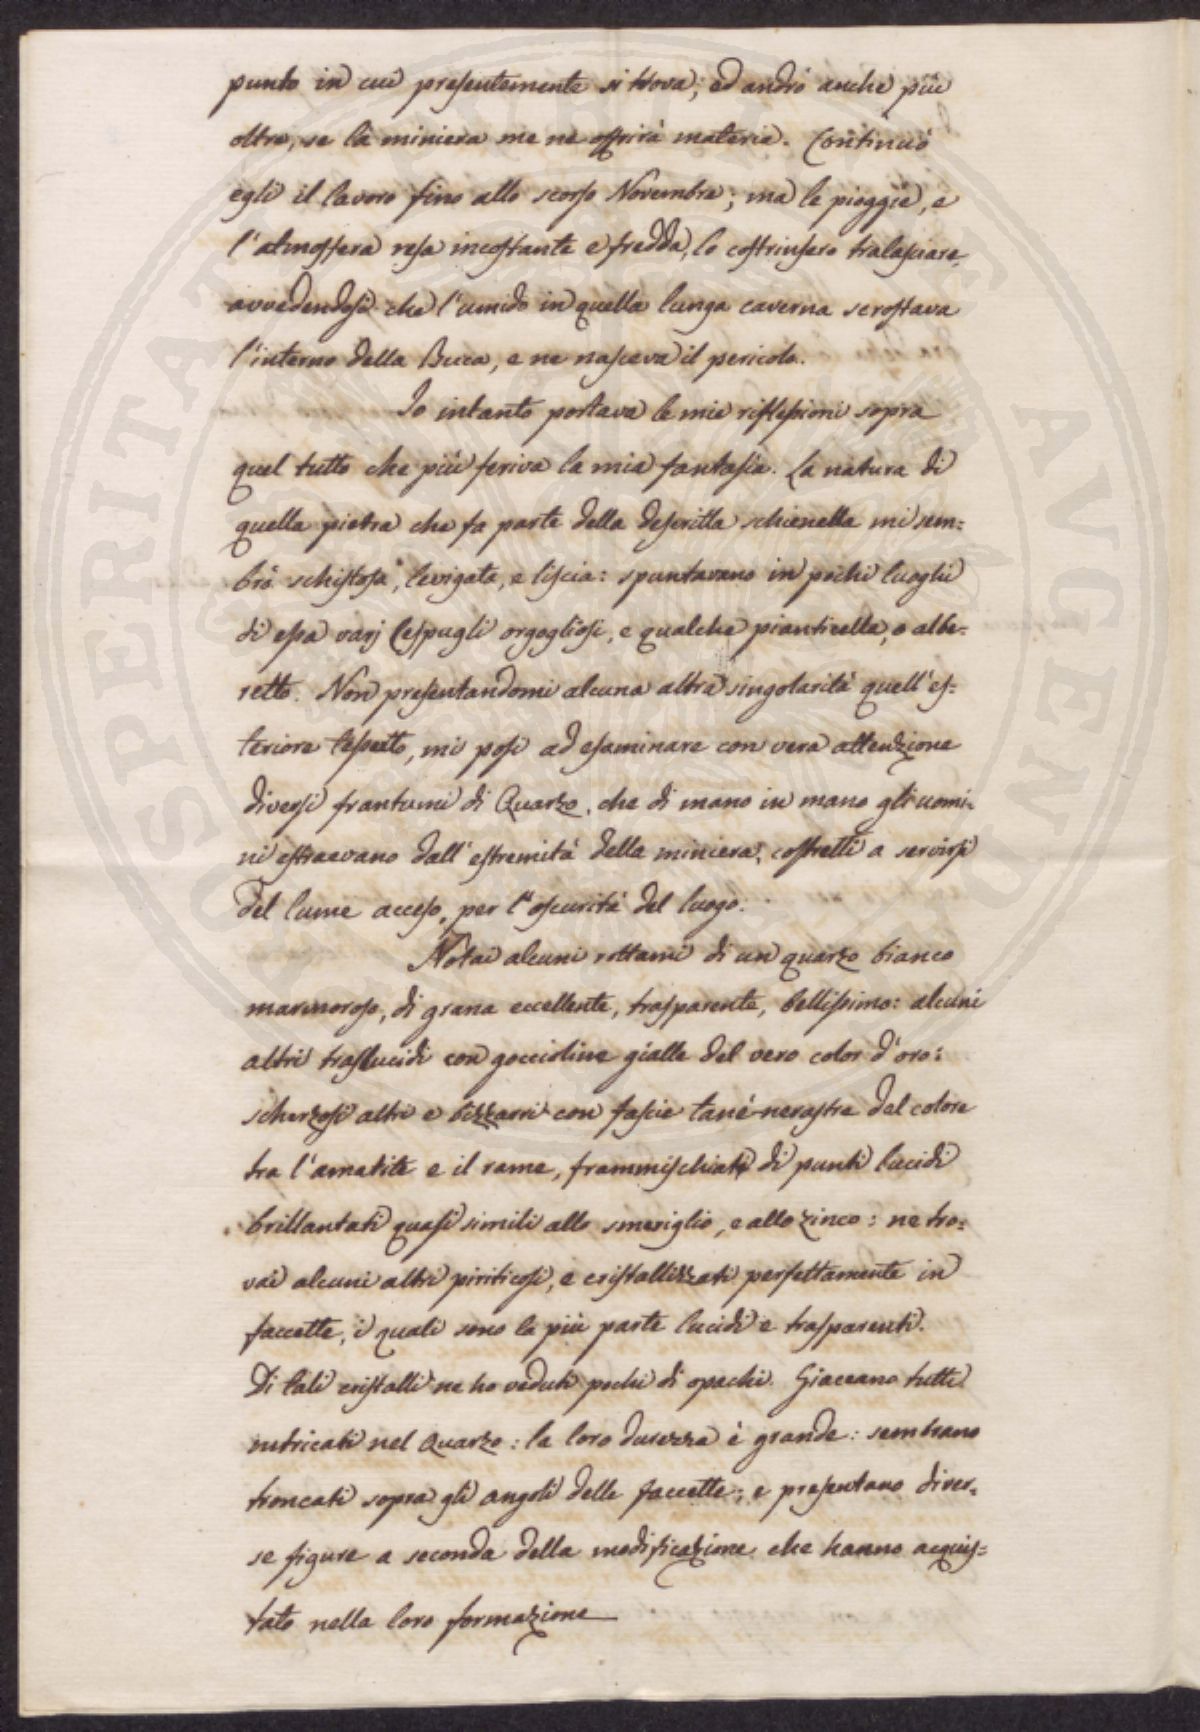 punto in cui presentemente si trova; ed andrò anche più
oltre, se la miniera me ne offrirà materia. Continuò
egli il lavoro fino allo scorso Novembre; ma le pioggie, e
l'atmosfera resa incostante e fredda, lo costrinsero tralasciare,
avvedendosi che l'umido in quella lunga caverna scrostava
l'interno della Buca, e ne nasceva il pericolo.
Io intanto portava le mie riflessioni sopra
quel tutto che più feriva la mia fantasia. La natura di
quella pietra che fa parte della descritta schienella mi sem=
brò schistosa, levigata, e liscia: spuntavano in pochi luoghi
di essa varj Cespugli orgogliosi, e qualche pianticella, o albe=
retto. Non presentandomi alcuna altra singolarità quell'es=
teriore tessuto, mi posi ad esaminare con vera attenzione
diversi frantumi di Quarzo, che di mano in mano gli uomi=
ni estraevano dall'estremità della miniera, costretti a servirsi
del lume acceso, per l'oscurità del luogo.
Notai alcuni rottami di un quarzo bianco
marmoroso, di grana eccellente, trasparente, bellissimo: alcuni
altri traslucidi con goccioline gialle del vero color d'oro:
scherzosi altri e bizzarri con fascie tanè-nerastre del colore
tra l'amatite e il rame, frammischiati di punti lucidi
brillantati quasi simili allo smeriglio, e allo zinco: ne tro=
vai alcuni altri piriticosi, e cristallizzati perfettamente in
faccette, i quali sono la più parte lucidi e trasparenti.
Di tali cristalli ne ho veduti pochi di opachi. Giaceano tutti
nutricati nel Quarzo: la loro durezza è grande: sembrano
troncati sopra gli angoli delle faccette; e presentano diver=
se figure a seconda della modificazione che hanno acquis=
tato nella loro formazione
PROSPERITATI AVGENDAE